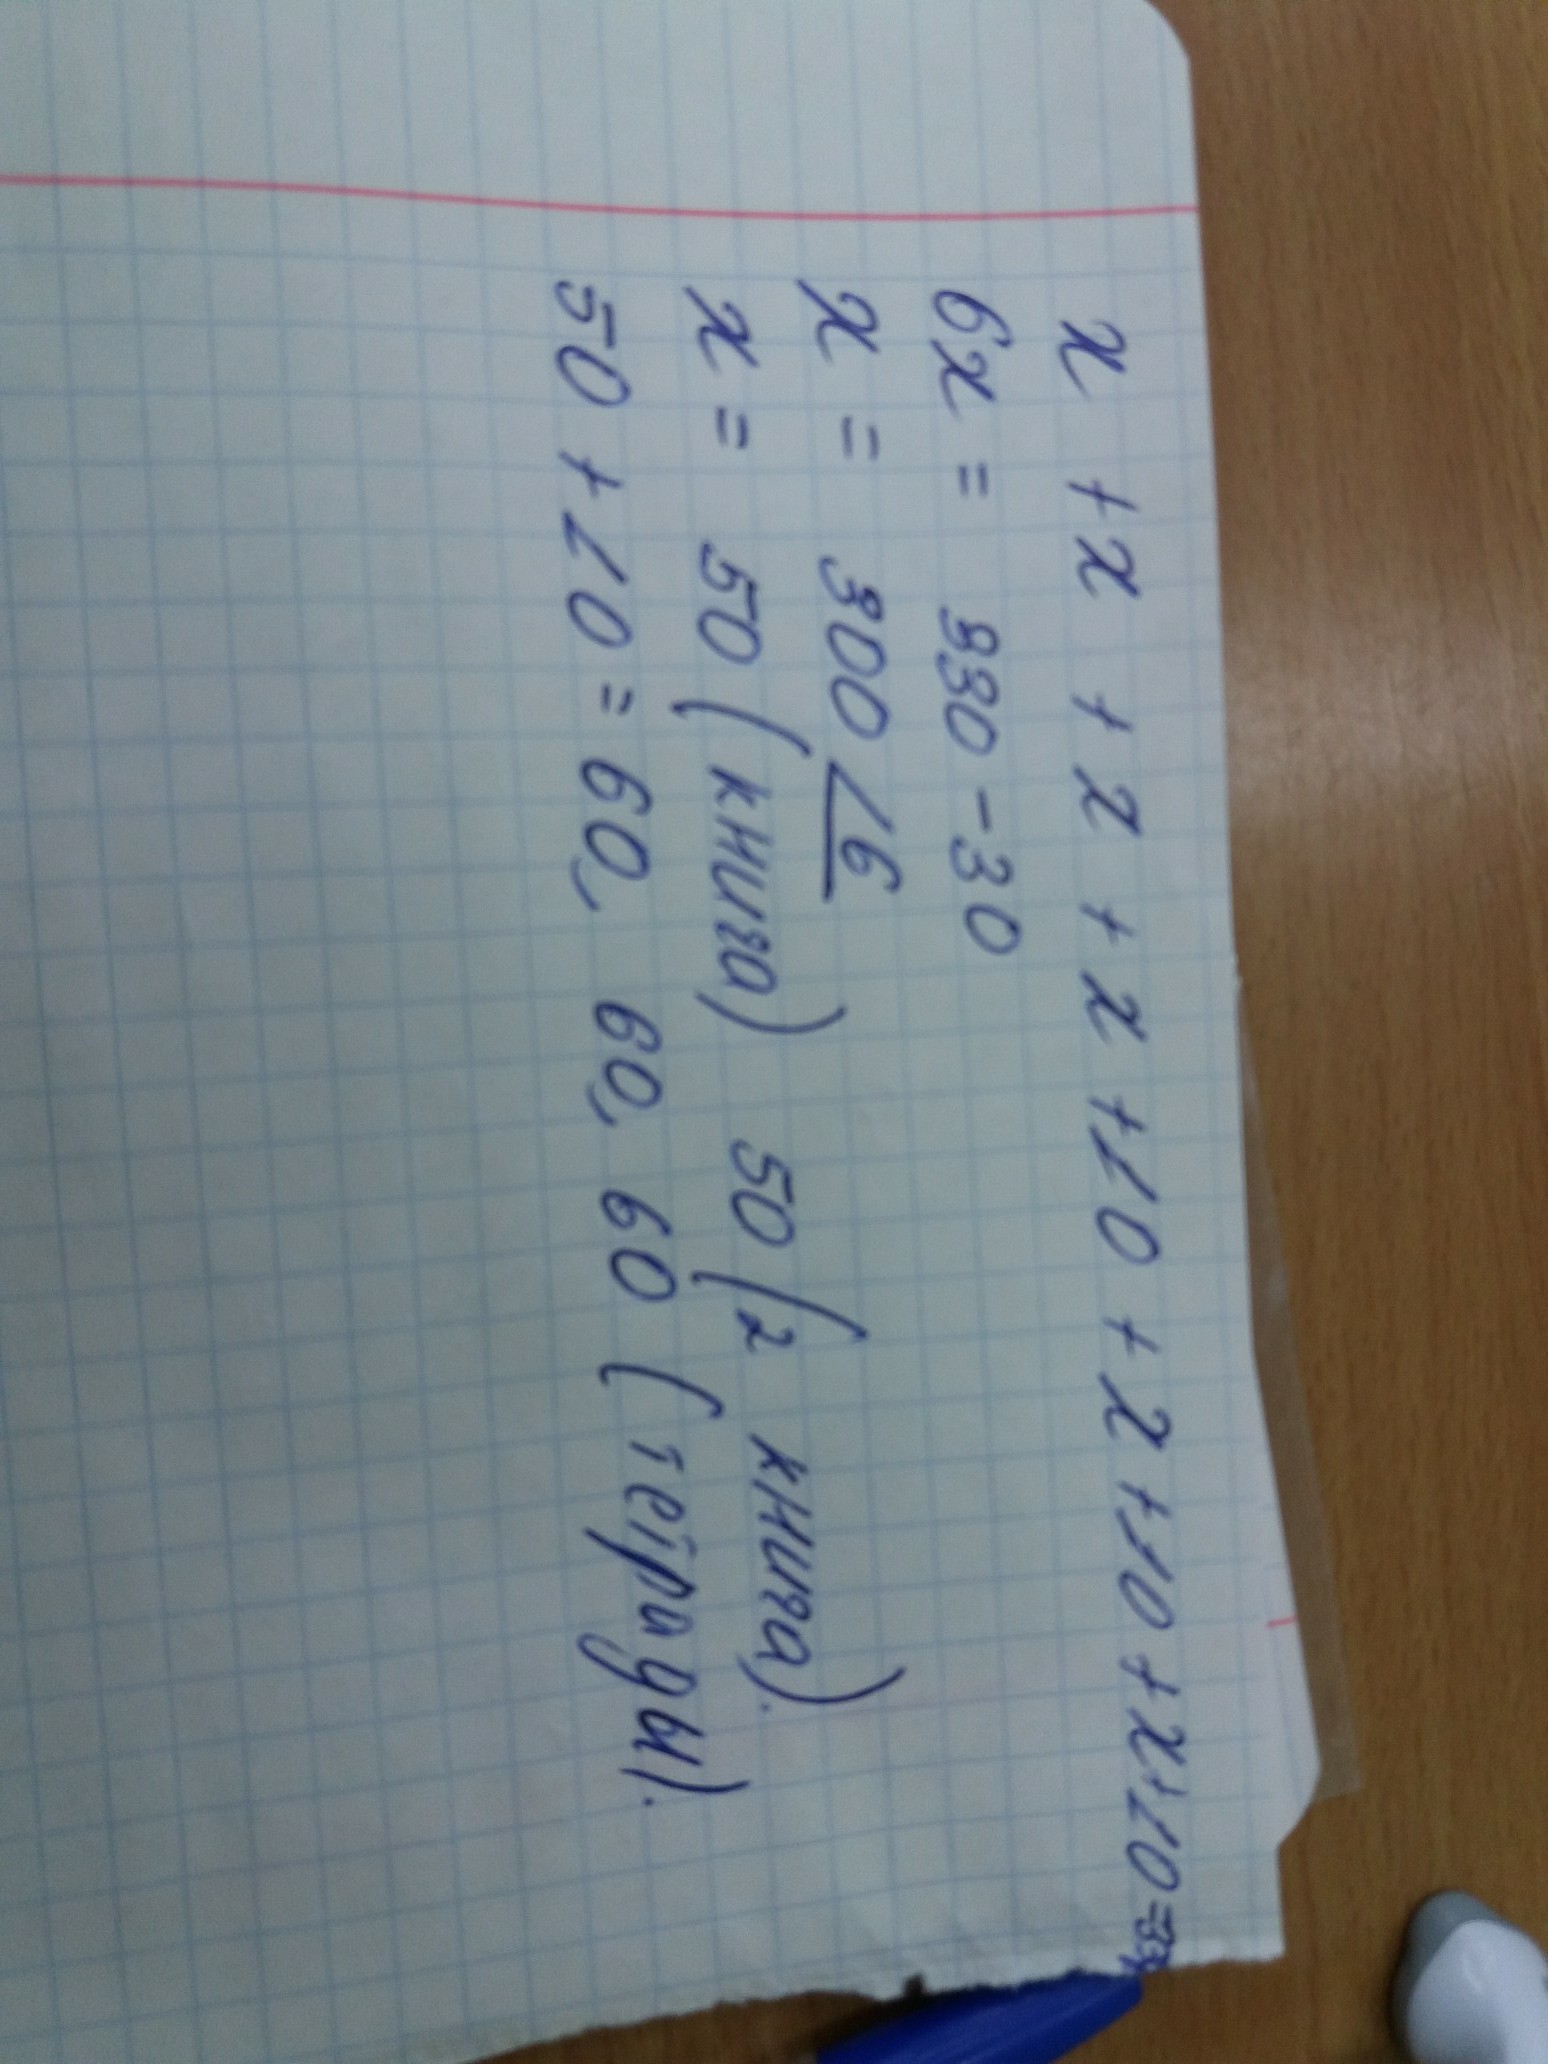 x + x + x + x + 10 + x + 10 + x + 10 = 33
6x = 330 - 30
x = 300 / 6
x = 50 (книга) 50 (2 книга).
50 + 10 = 60, 60, 60 (тетрады).